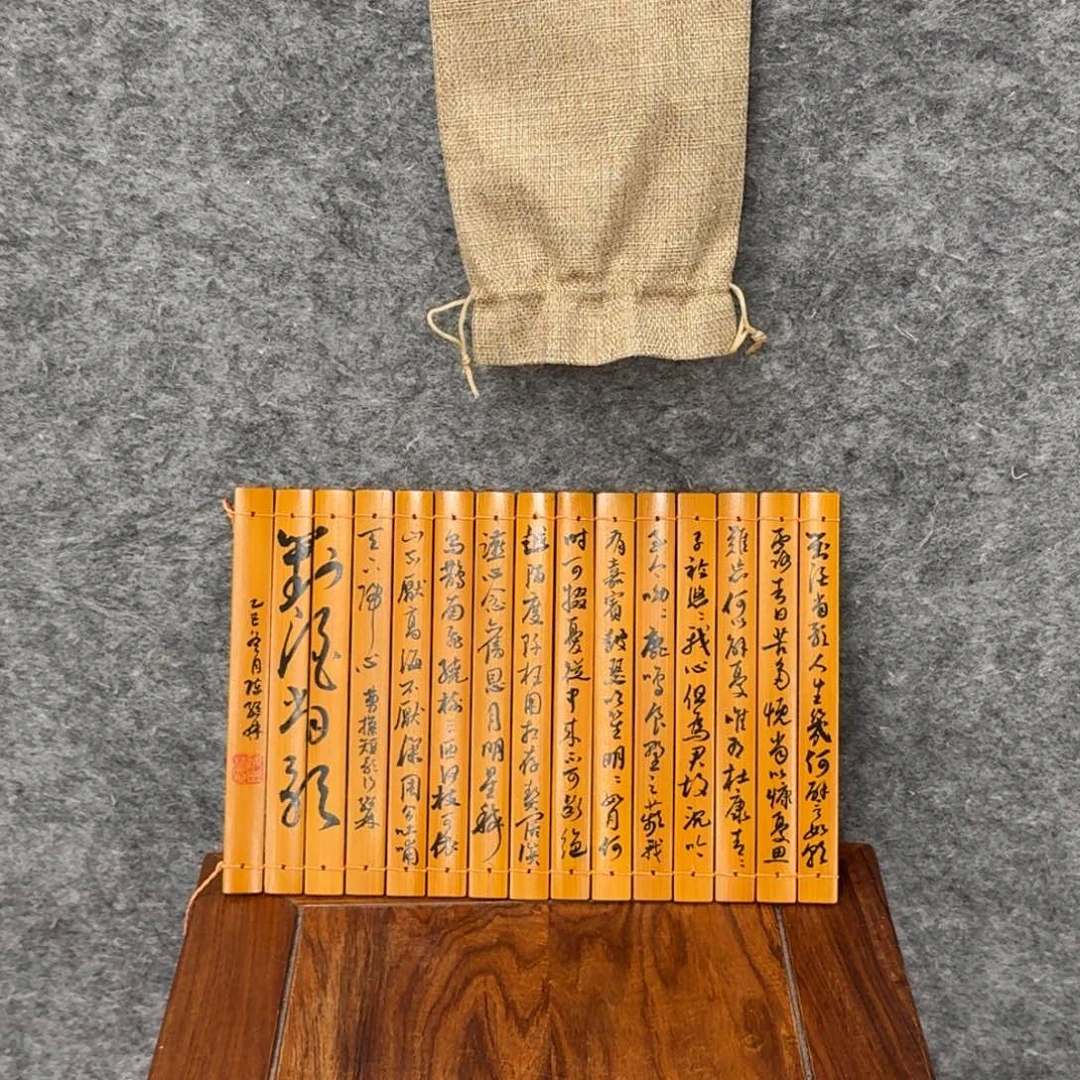 對酒當歌人生幾何譬如朝
露去日苦多慨當以慷憂思
難忘何以解憂唯有杜康青〻
子衿悠〻我心但為君故沉吟
至今呦〻鹿鳴食野之蘋我
有嘉賓鼓瑟吹笙明〻如月何
時可掇憂從中來不可斷絕
越陌度阡枉用相存契闊談
讌心念舊恩月明星稀
烏鵲南飛繞樹三匝何枝可依
山不厭高海不厭深周公吐哺
天下歸心 曹操短歌行
對酒當歌
乙巳冬月